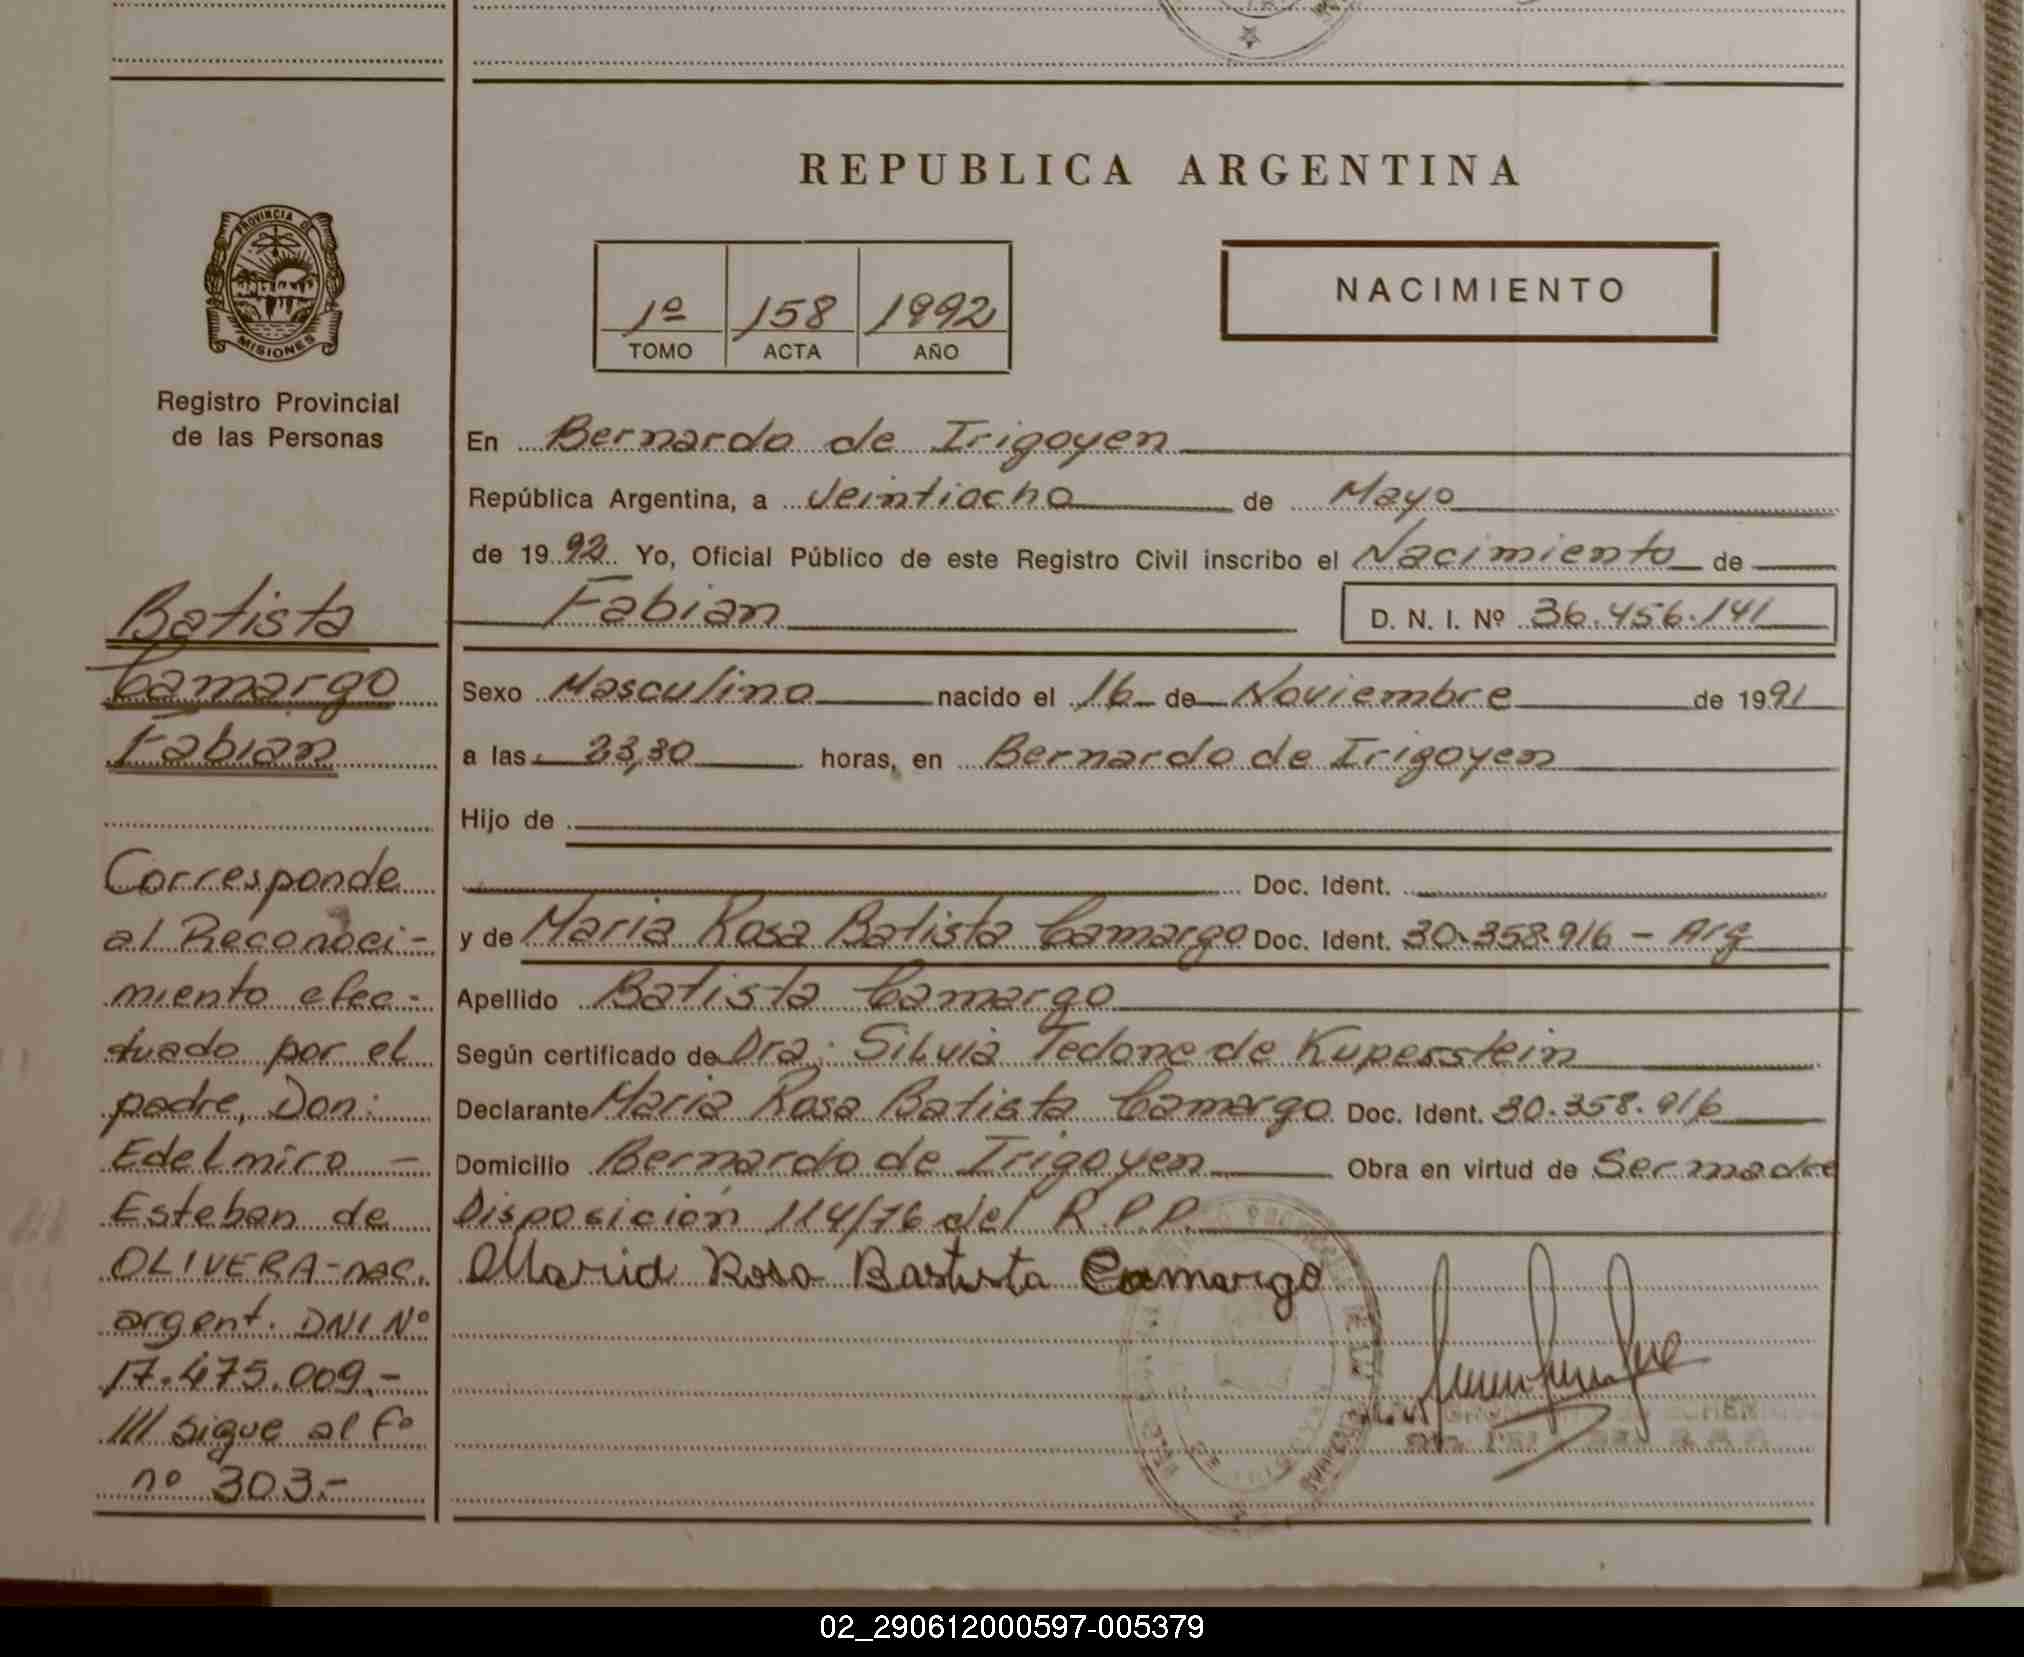 REPUBLICA ARGENTINA
PROVINCIA DE
MISIONES
Registro Provincial
de las Personas
1º 158 1992
TOMO ACTA AÑO
NACIMIENTO
En Bernardo de Irigoyen
República Argentina, a Veintiocho de Mayo
de 1992 Yo, Oficial Público de este Registro Civil inscribo el Nacimiento de
Fabian D. N. I. Nº 36.456.141
Sexo Masculino nacido el 16 de Noviembre de 1991
a las 23,30 horas, en Bernardo de Irigoyen
Hijo de
Doc. Ident.
y de Maria Rosa Batista Camargo Doc. Ident. 30.358.916 - Arg
Apellido Batista Camargo
Según certificado de Dra: Silvia Tedone de Kuperstein
Declarante Maria Rosa Batista Camargo Doc. Ident. 30.358.916
Domicilio Bernardo de Irigoyen Obra en virtud de Ser madre
Disposición 114/76 del R.P.P.
Maria Rosa Bastista Camargo
Batista
Camargo
Fabian
Corresponde
al Reconoci-
miento efec-
tuado por el
padre, Don:
Edelmiro -
Esteban de
OLIVERA-nac.
argent. DNI Nº
17.475.009.-
/// sigue al Fº
nº 303.-
02_290612000597-005379